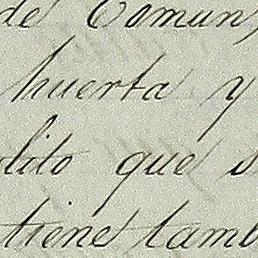 de Comun
huerta y
dito que s
tiene tamb